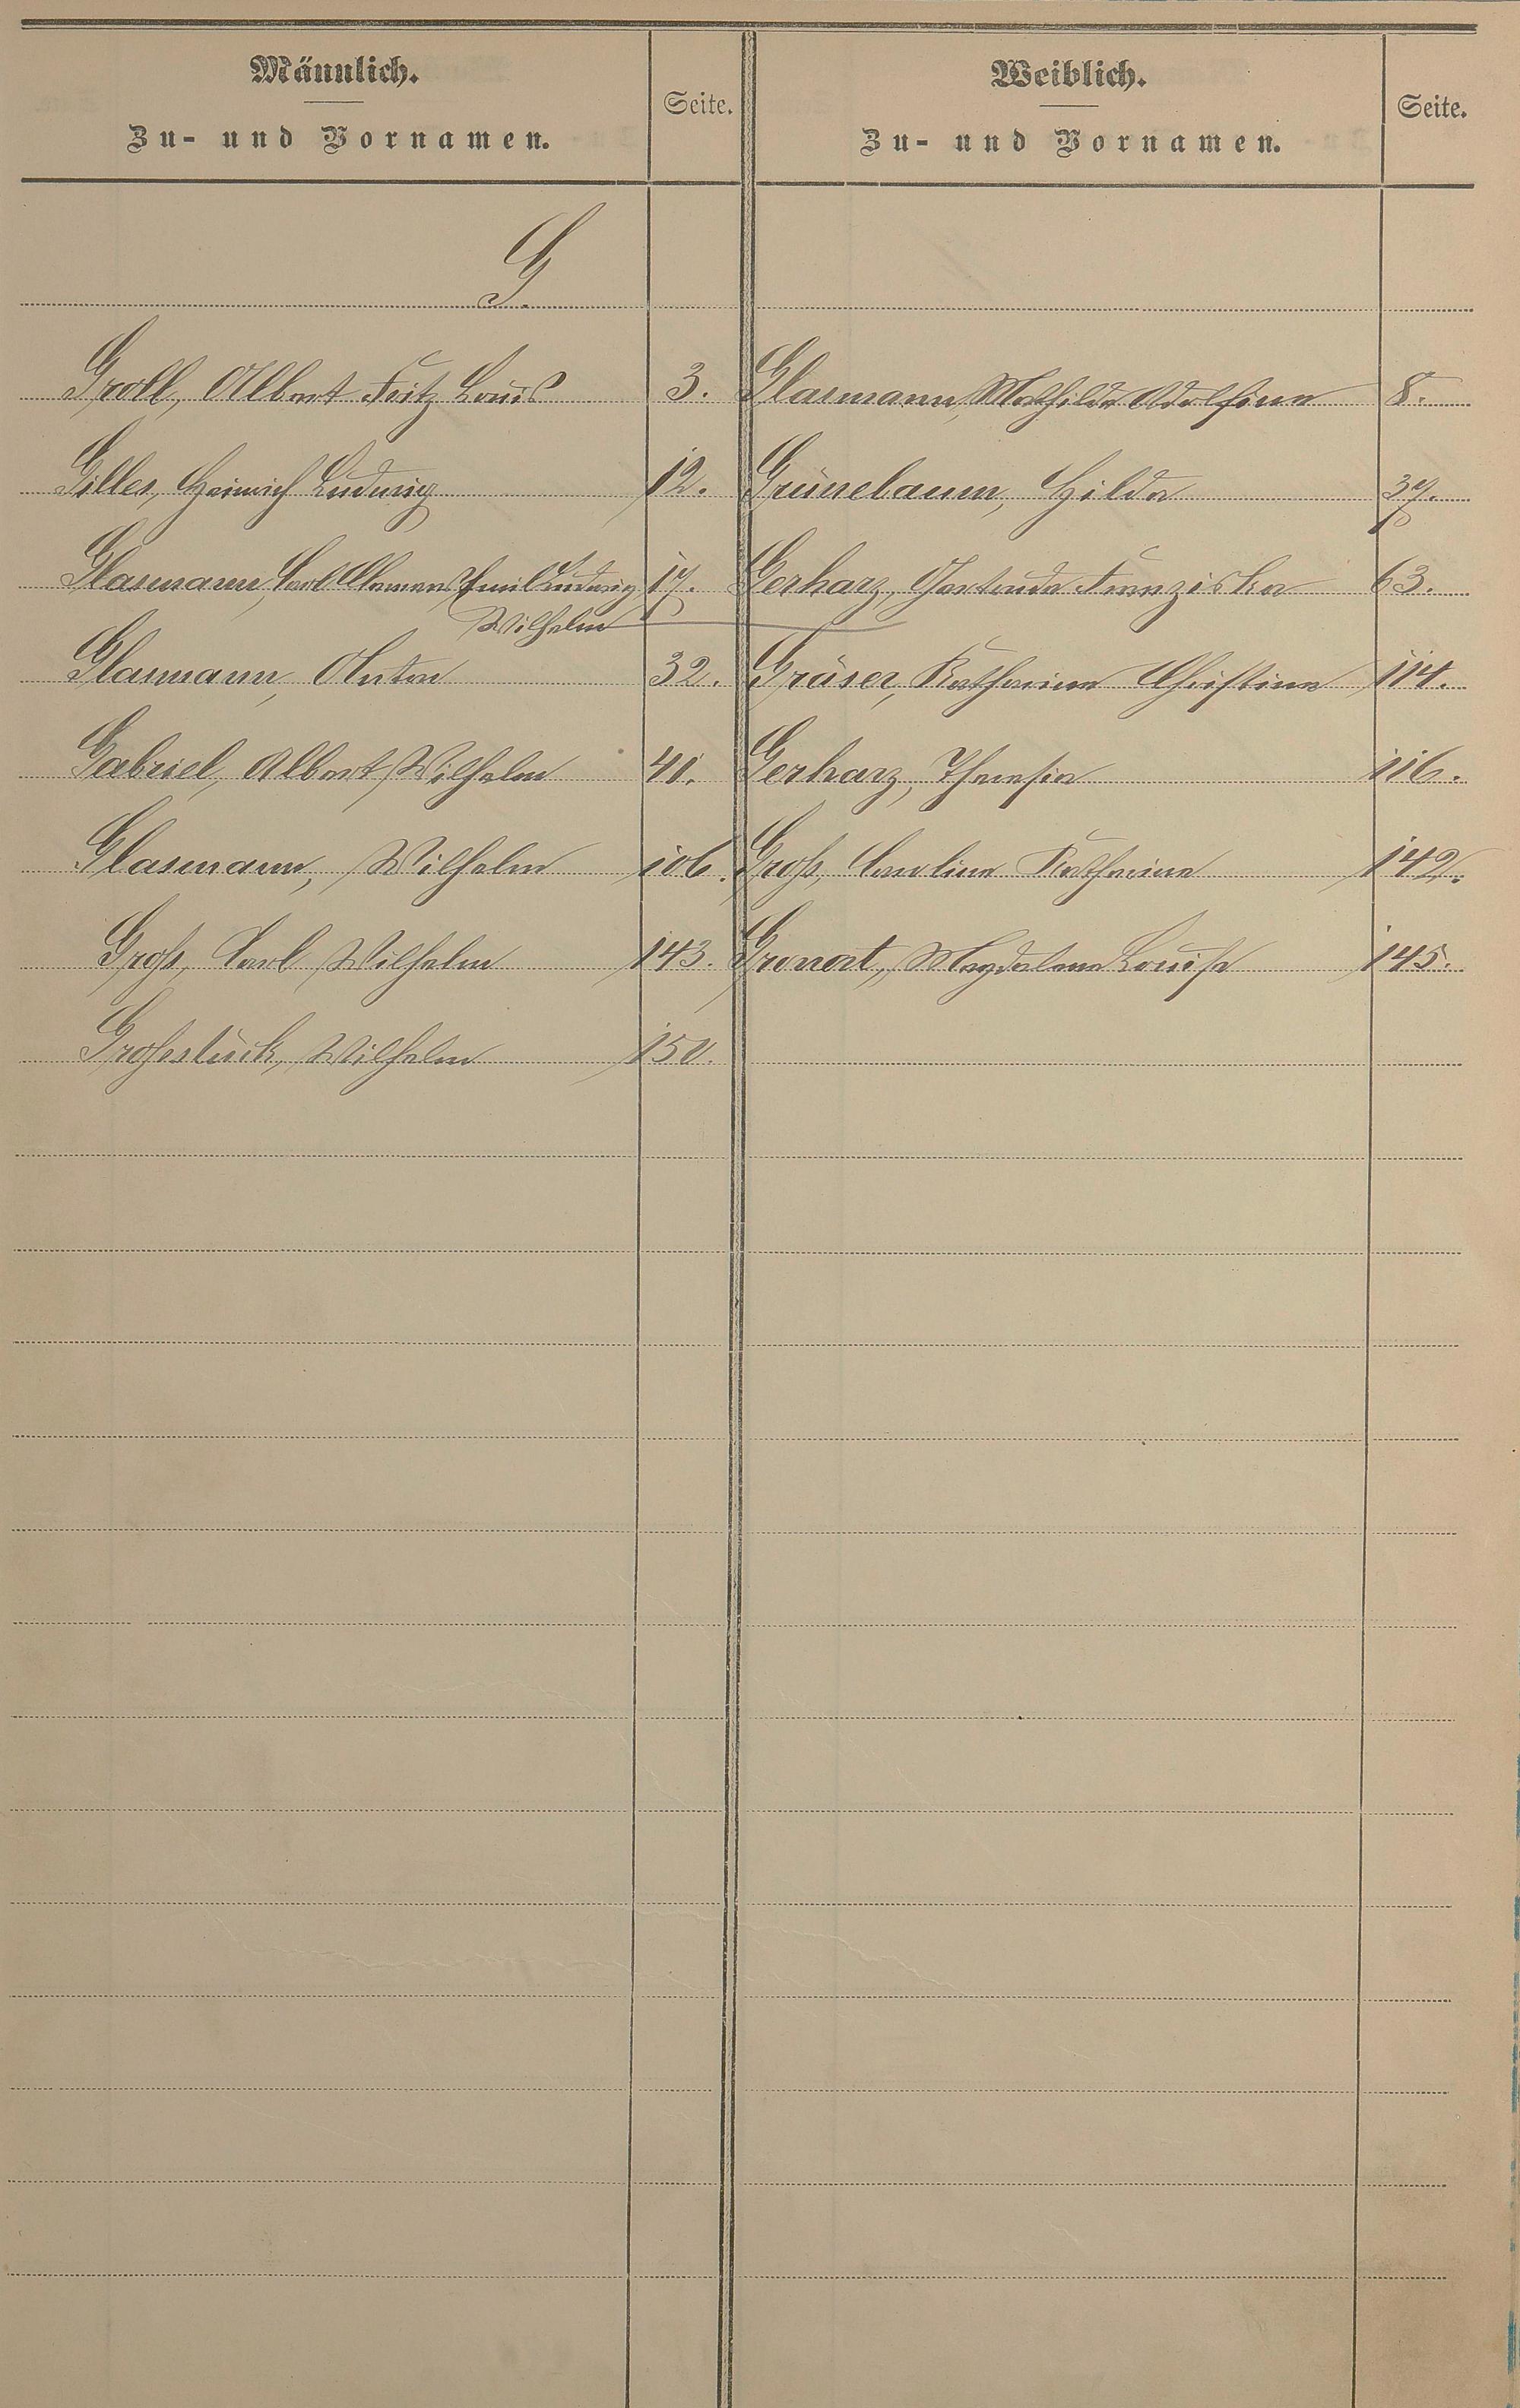 Männlich.
Zu- und Vornamen.
Seite.
Weiblich.
Zu- und Vornamen.
Seite.
G.
Groll, Albert Fritz Louis 3. Glasmann, Mathilde Adolfine 8.
Gilles, Heinrich Ludwig 12. Grünebaum, Hilda 37.
Glasmann, Carl Clemens Emil Ludwig 17. Gerharz, Gertrude Franziska 63.
Wilhelm
Glasmann, Anton 32. Gräser, Katharina Christine 114.
Gabriel, Albert Wilhelm 40. Gerharz, Theresia 116.
Glasmann, Wilhelm 106. Groß, Caroline Katharina 142.
Groß, Carl Wilhelm 143. Magdalena Louise 145.
Großstück, Wilhelm 150.